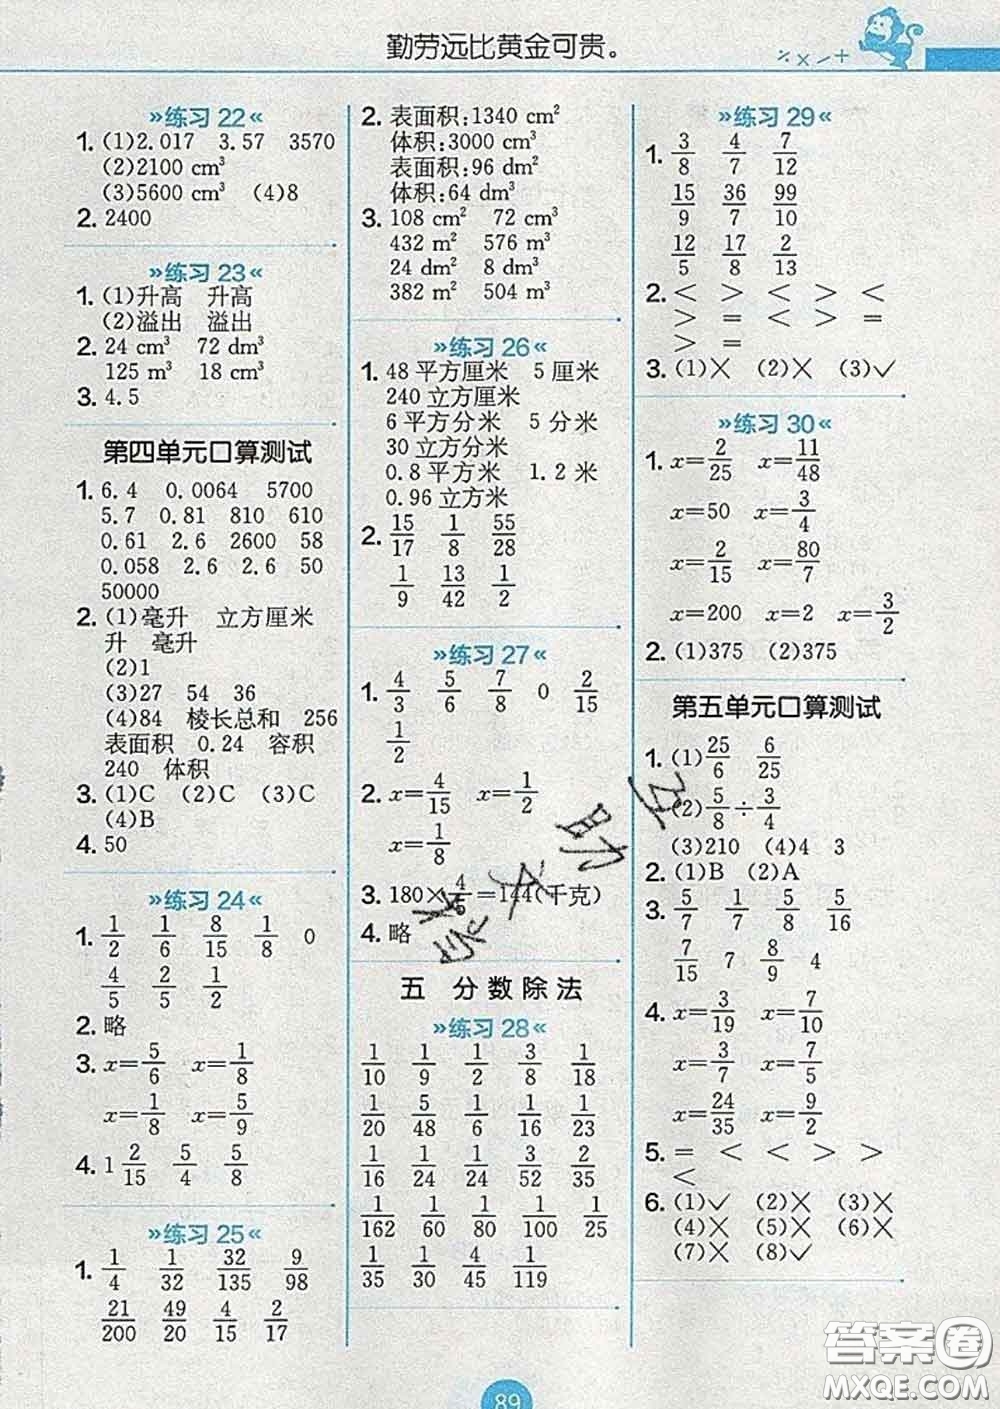 勤劳远比黄金可贵。
÷ × − +
»练习 22«
1. (1)2.017 3.57 3570
(2)2100 cm³
(3)5600 cm³ (4)8
2. 2400
»练习 23«
1. (1)升高 升高
(2)溢出 溢出
2. 24 cm³ 72 dm³
125 m³ 18 cm³
3. 4.5
第四单元口算测试
1. 6.4 0.0064 5700
5.7 0.81 810 610
0.61 2.6 2600 58
0.058 2.6 2.6 50
50000
2. (1)毫升 立方厘米
升 毫升
(2)1
(3)27 54 36
(4)84 棱长总和 256
表面积 0.24 容积
240 体积
3. (1)C (2)C (3)C
(4)B
4. 50
»练习 24«
1. 1/2 1/6 8/15 1/8 0
4/5 2/5 1/2
2. 略
3. x=5/6 x=1/8
x=1/8 x=5/9
4. 1 2/15 5/4 5/8
»练习 25«
1. 1/4 1/32 32/135 9/98
21/200 49/20 4/15 2/17
2. 表面积:1340 cm²
体积:3000 cm³
表面积:96 dm²
体积:64 dm³
3. 108 cm² 72 cm³
432 m² 576 m³
24 dm² 8 dm³
382 m² 504 m³
»练习 26«
1. 48 平方厘米 5 厘米
240 立方厘米
6 平方分米 5 分米
30 立方分米
0.8 平方米 1.2 米
0.96 立方米
2. 15/17 1/8 55/28
1/9 13/42 1/2
»练习 27«
1. 4/3 5/6 7/8 0 2/15
1/2
2. x=4/15 x=1/2
x=1/8
3. 180×4/5=144(千克)
4. 略
五 分数除法
»练习 28«
1/10 1/9 1/2 3/8 1/18
1/20 5/48 1/6 1/9 1/12
1/16 1/24 1/24 3/52 2/35
1/162 1/60 1/80 1/100 1/25
1/35 1/30 4/45 1/119
»练习 29«
1. 3/8 4/7 7/12
15/9 36/7 99/10
12/5 17/8 2/13
2. < > < > <
> = < > =
= >
3. (1)× (2)× (3)✓
»练习 30«
1. x=2/25 x=11/48
x=50 x=3/4
x=2/15 x=80/7
x=200 x=2 x=3/2
2. (1)375 (2)375
第五单元口算测试
1. (1)25/6 6/25
(2)5/8÷3/4
(3)210 (4)4 3
2. (1)B (2)A
3. 5/7 1/7 5/8 5/16
7/15 7 8/9 4
4. x=3/19 x=7/10
x=3/7 x=5/7
x=24/35 x=9/2
5. = < < > >
<
6. (1)✓ (2)× (3)×
(4)× (5)× (6)×
(7)× (8)✓
89
答案圈
MXQE.COM